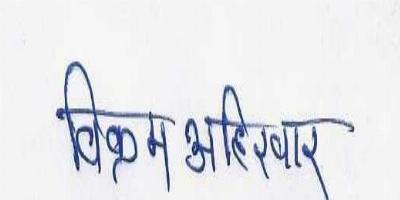 विक्रम अहिरवार